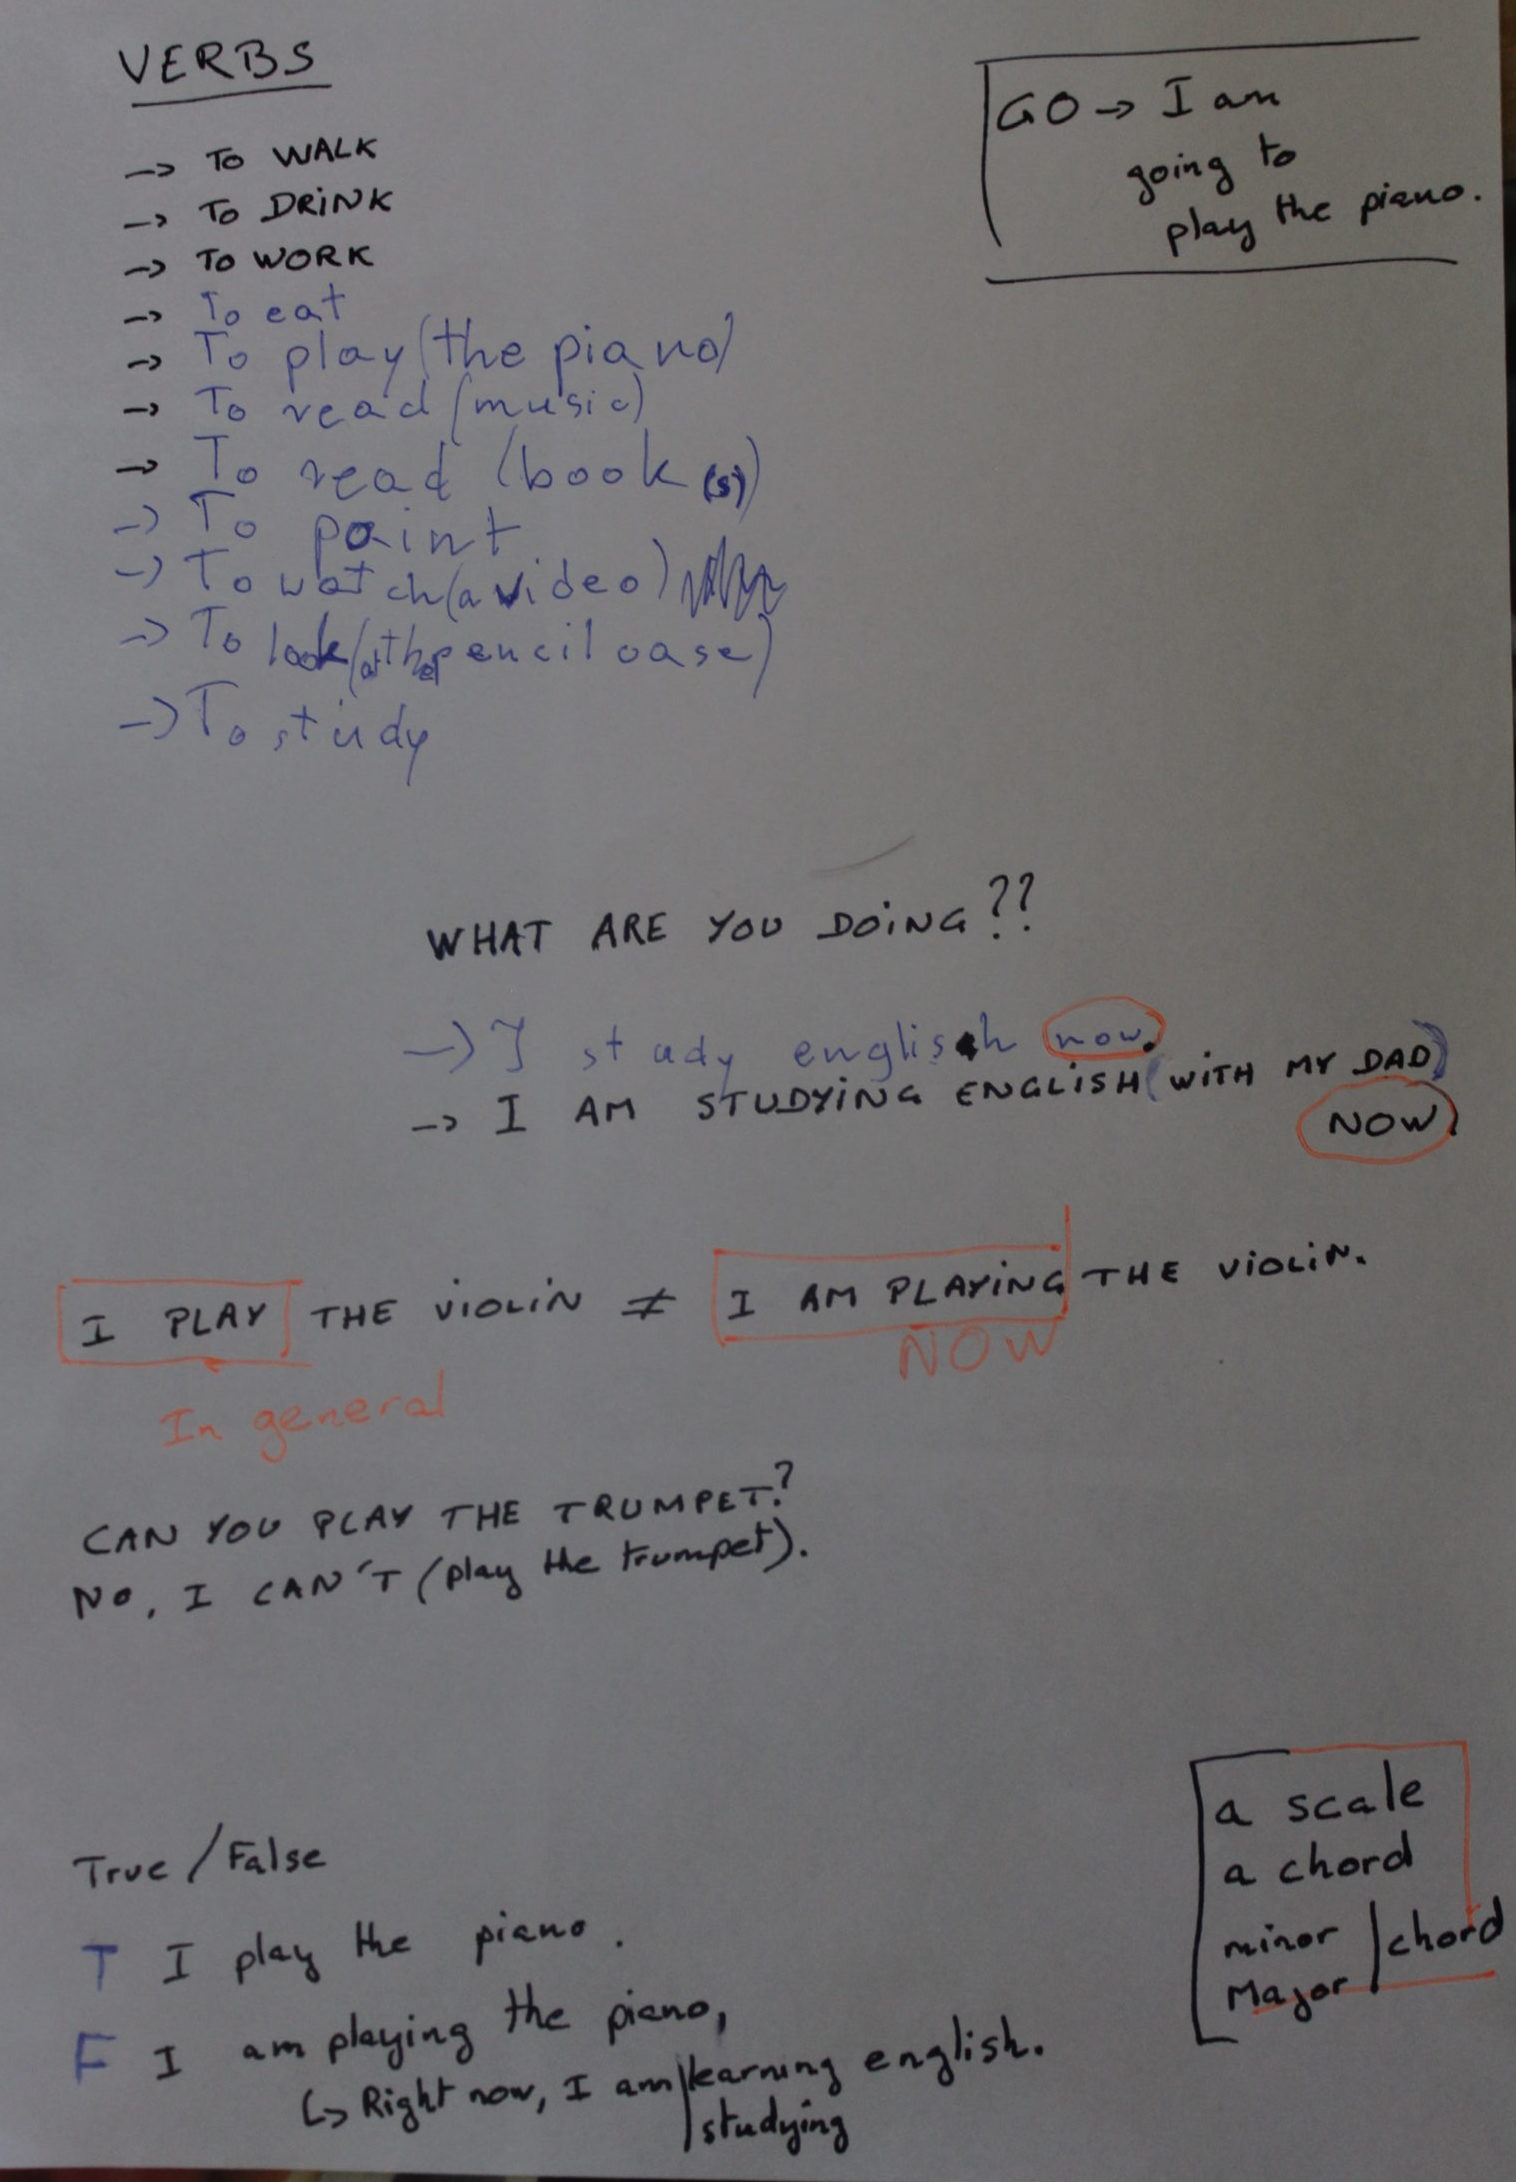 VERBS
-> TO WALK
-> TO DRINK
-> TO WORK
-> To eat
-> To play (the piano)
-> To read (music)
-> To read (book(s))
-> To paint
-> To watch (a video)
-> To look (at the pencil case)
-> To study
GO -> I am
going to
play the piano.
WHAT ARE YOU DOING??
-> I study english now.
-> I AM STUDYING ENGLISH (WITH MY DAD)
NOW
I PLAY THE VIOLIN ≠ I AM PLAYING THE VIOLIN.
In general
NOW
CAN YOU PLAY THE TRUMPET?
NO, I CAN'T (play the trumpet).
a scale
a chord
minor | chord
Major
True / False
T I play the piano.
F I am playing the piano,
↳ Right now, I am | learning english.
| studying